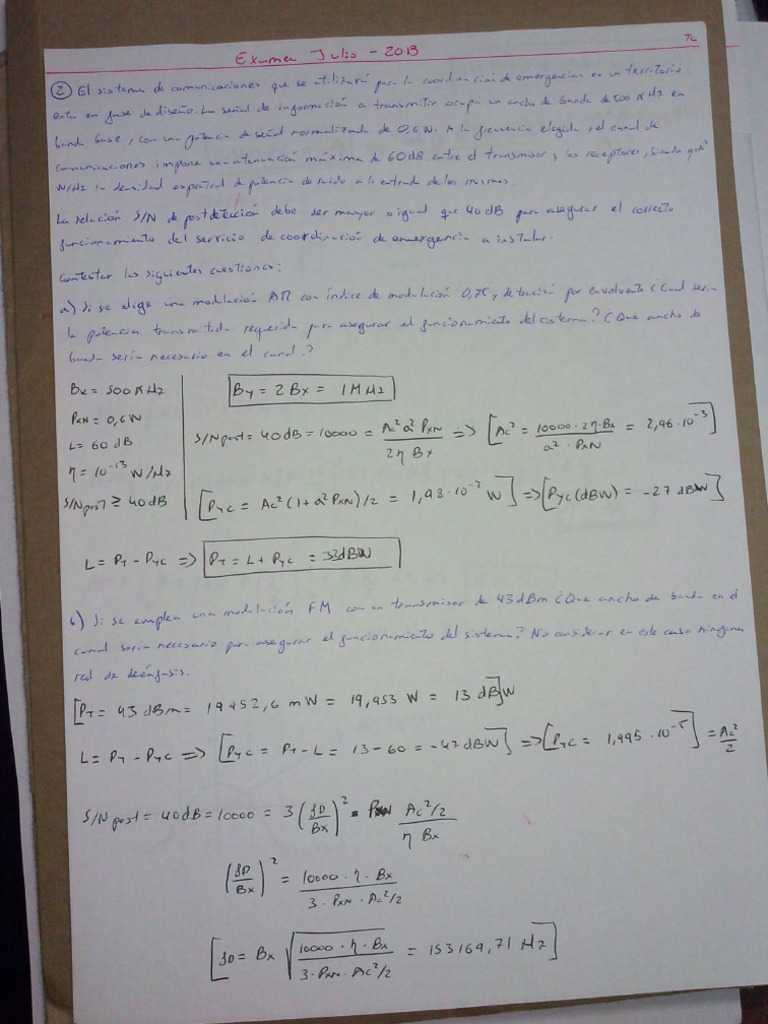 Examen Julio - 2013
TC
② El sistema de comunicaciones que se utilizará para la coordinación de emergencias en un territorio
esta en fase de diseño. La señal de información a transmitir ocupa un ancho de banda de 500 KHz en
banda base, con una potencia de señal normalizada de 0,6 W. A la frecuencia elegida, el canal de
comunicaciones impone una atenuación máxima de 60 dB entre el transmisor y los receptores, siendo
W/Hz la densidad espectral de potencia de ruido a la entrada de los mismos.
La relación S/N de postdetección debe ser mayor o igual que 40 dB para asegurar el correcto
funcionamiento del servicio de coordinación de emergencia a instalar.
Contestar las siguientes cuestiones:
a) Si se elige una modulación AM con índice de modulación 0,75 y detección por envolvente ¿Cual sería
la potencia transmitida requerida para asegurar el funcionamiento del sistema? ¿Que ancho de
banda sería necesario en el canal?
Bx = 500 KHz
PxN = 0,6 W
L = 60 dB
η = 10^-13 W/Hz
S/Npost ≥ 40 dB
By = 2Bx = 1 MHz
S/Npost = 40 dB = 10000 = Ac² a² PxN / 2η Bx => [Ac² = 10000 · 2η · Bx / a² · PxN = 2,96 · 10^-3]
[Pyc = Ac² (1 + a² PxN)/2 = 1,98 · 10^-3 W] => [Pyc (dBW) = -27 dBW]
L = PT - Pyc => PT = L + Pyc = 33 dBW
b) Si se emplea una modulación FM con un transmisor de 43 dBm ¿Que ancho de banda en el
canal sería necesario para asegurar el funcionamiento del sistema? No considerar en este caso ninguna
red de deénfasis.
[PT = 43 dBm = 19952,6 mW = 19,953 W = 13 dB]W
L = PT - Pyc => [Pyc = PT - L = 13 - 60 = -47 dBW] => [Pyc = 1,995 · 10^-5] = Ac²/2
S/Npost = 40 dB = 10000 = 3 (fD/Bx)² · PxN Ac²/2 / η Bx
(fD/Bx)² = 10000 · η · Bx / 3 · PxN · Ac²/2
[fD = Bx √(10000 · η · Bx / 3 · PxN · Ac²/2) = 153169,71 Hz]